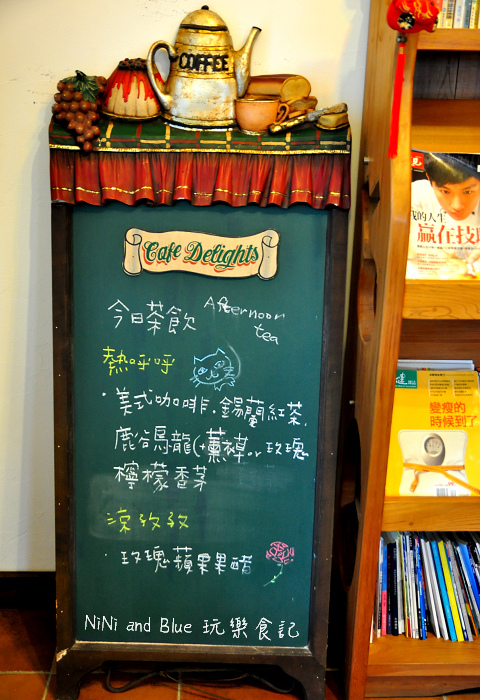 COFFEE
Cafe Delights
今日茶飲 Afternoon tea
熱呼呼
・美式咖啡・錫蘭紅茶.
鹿谷烏龍(+薰衣草or玫瑰
檸檬香茅
涼孜孜
・玫瑰蘋果果醋
NiNi and Blue 玩樂食記
我的人生
贏在技
變瘦的
時候到了